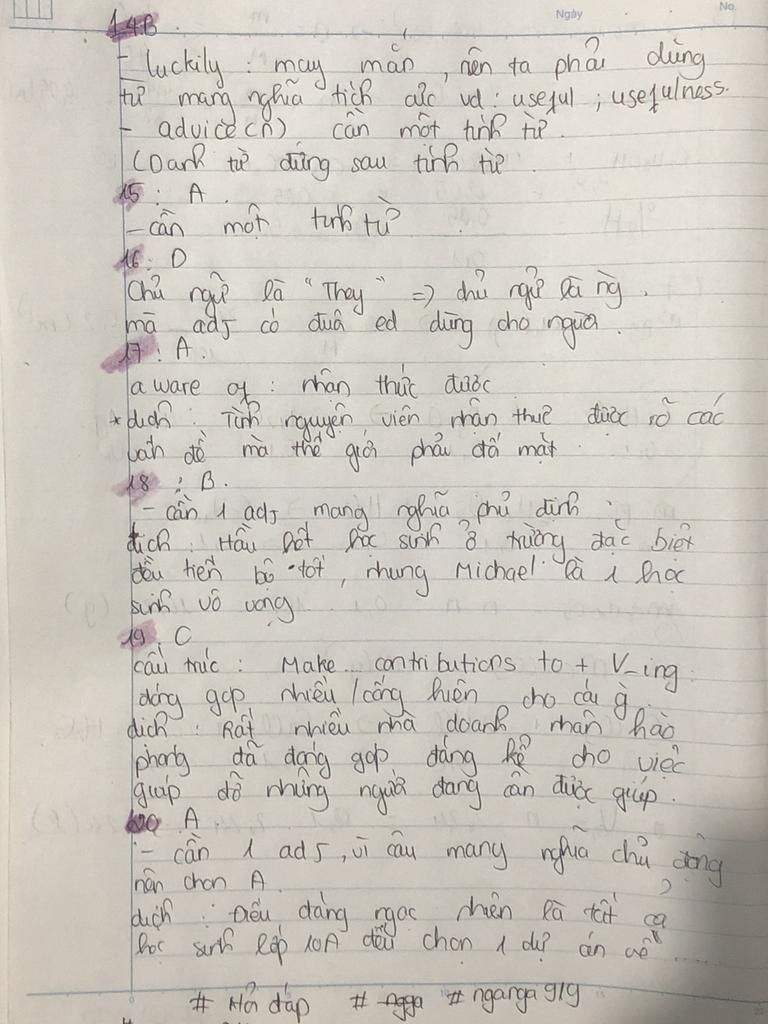 Ngày No.
14B.
- luckily : may mắn, nên ta phải dùng
từ mang nghĩa tích cực vd : useful ; usefulness.
- advice (n) cần một tính từ.
(Danh từ đứng sau tính từ.
15 : A.
- cần một tính từ
16 : D
Chủ ngữ là "They" => chủ ngữ là ng.
mà adj có đuôi ed dùng cho người.
17 : A.
aware of : nhận thức được
* dịch : Tình nguyện viên nhận thức được rõ các
vấn đề mà thế giới phải đối mặt.
18 : B.
- cần 1 adj mang nghĩa phủ định :
dịch : Hầu hết học sinh ở trường đặc biệt
đều tiến bộ tốt, nhưng Michael là 1 học
sinh vô vọng.
19. C
cấu trúc : Make ... contributions to + V_ing
đóng góp nhiều / cống hiến cho cái gì.
dịch : Rất nhiều nhà doanh nhân hào
phóng đã đóng góp đáng kể cho việc
giúp đỡ những người đang cần được giúp.
20. A
- cần 1 adj, vì câu mang nghĩa chủ động
nên chọn A.
dịch : Điều đáng ngạc nhiên là tất cả
học sinh lớp 10A đều chọn 1 dự án về .....
# Hỏi đáp # nganga9/9